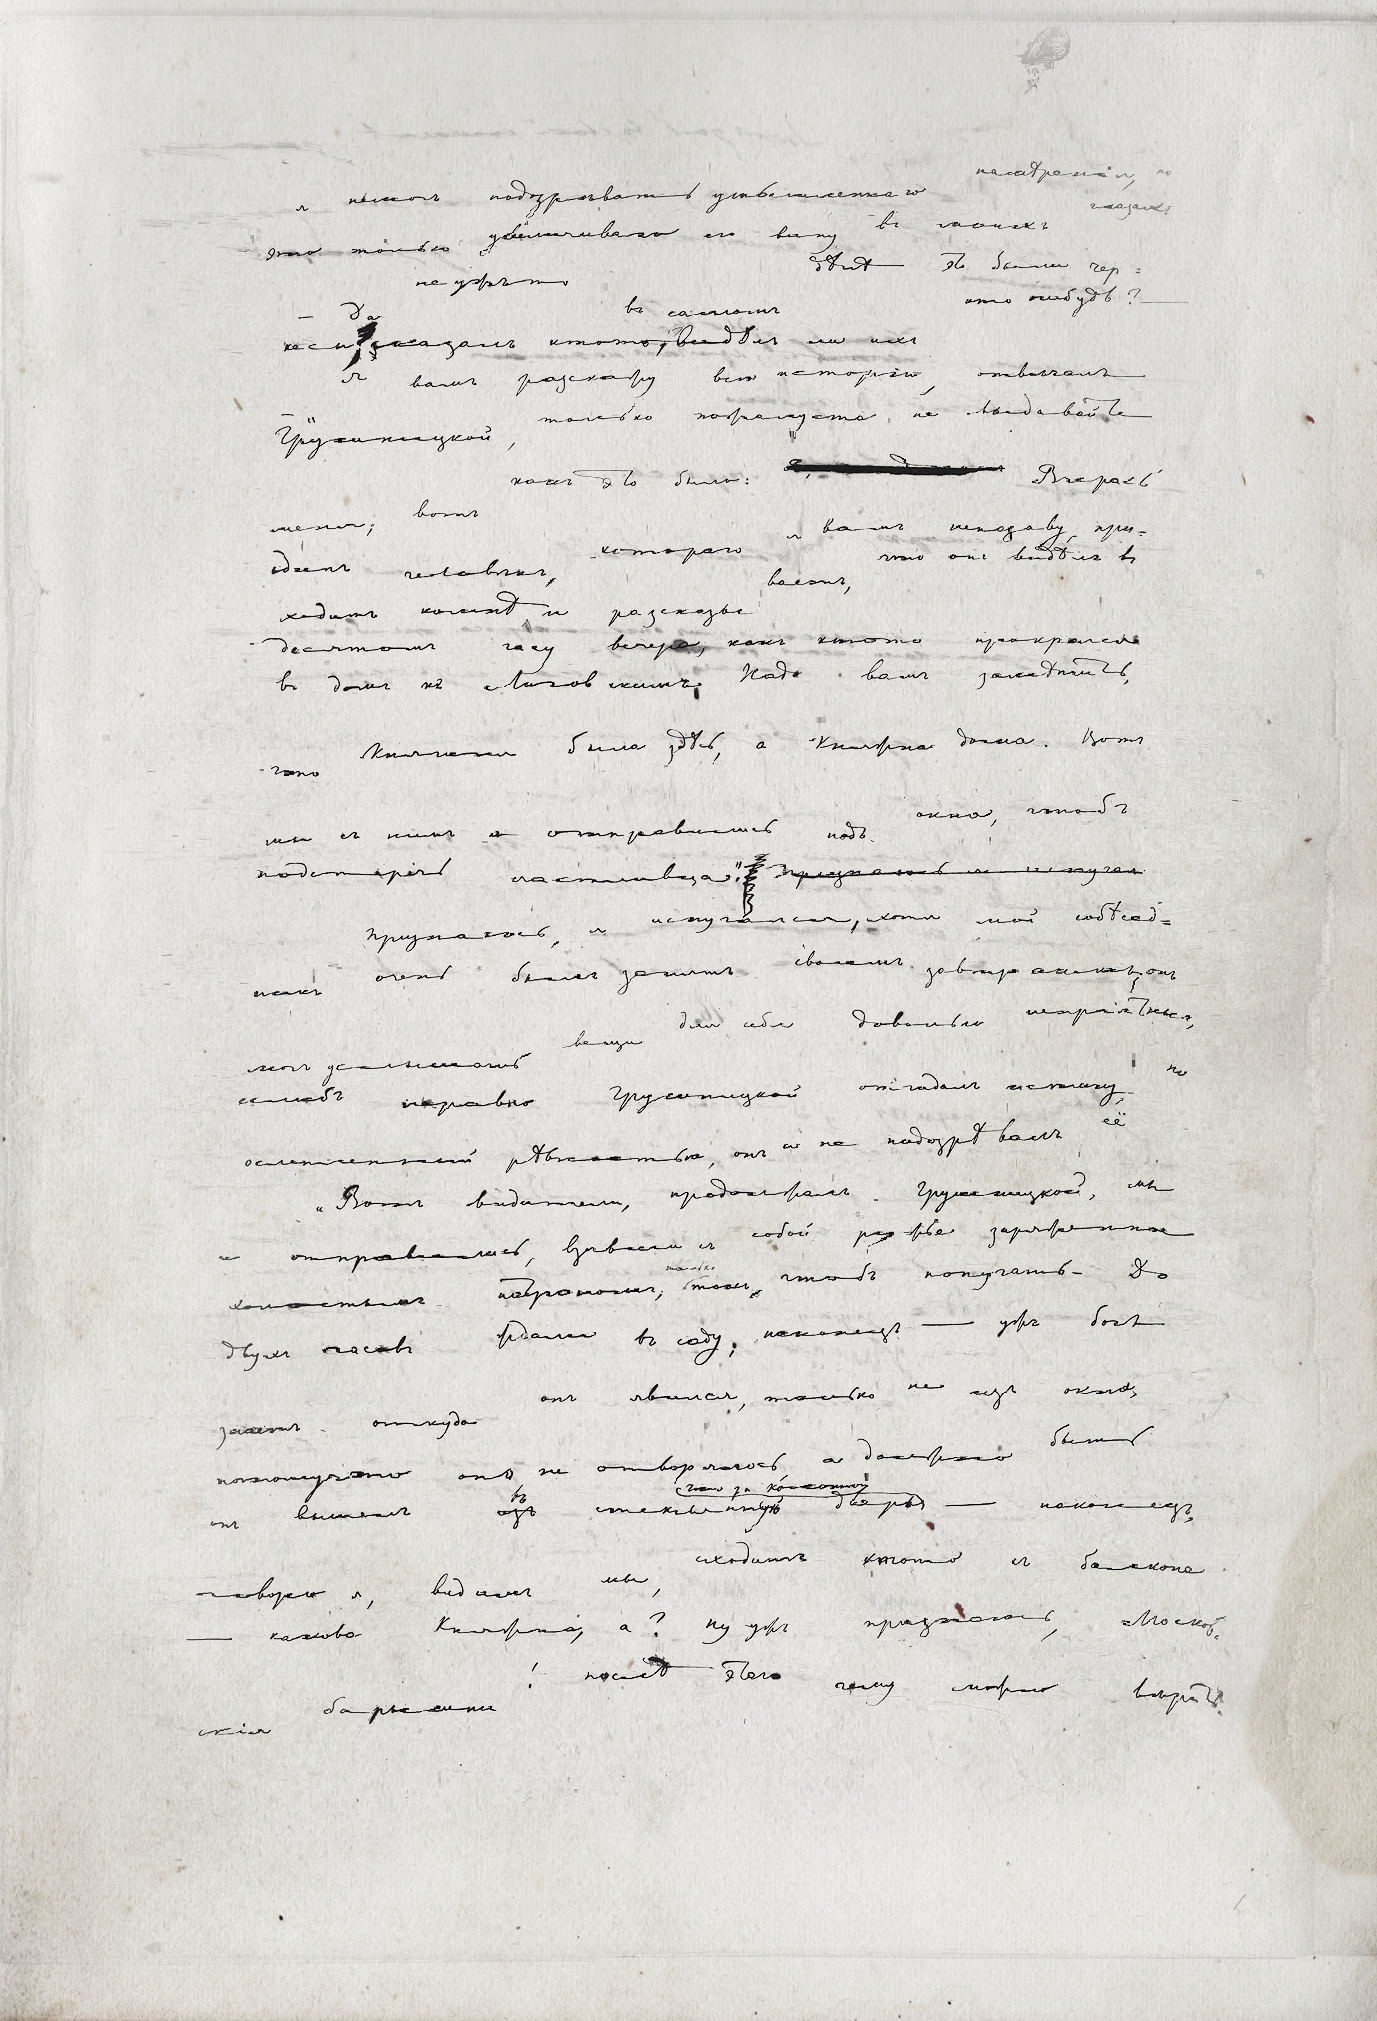 я немогъ подозрѣвать умышленнаго намѣренія, но
это только увеличивало его вину въ моихъ глазахъ
— Да неужъ то въ самомъ дѣлѣ это были чер=
кесы? сказалъ ктото, видѣлъ ли ихъ кто нибудь? —
— Я вамъ разскажу всю исторію, отвѣчалъ
Грушницкой, только пожалуста не выдавайте
меня; вотъ какъ это было: Вчерась
одинъ человѣкъ, котораго я вамъ неназову, при=
ходитъ комнѣ и разсказываетъ, что онъ видѣлъ въ
десятомъ часу вечера, какъ ктото прокрался
въ домъ къ Лиговскимъ. Надо вамъ замѣтить,
что Княгиня была здѣсь, а Княжна дома. Вотъ
мы съ нимъ и отправились подъ окна, чтобъ
подстеречь счастливца." Признаюсь я испугал
Признаюсь, я испугался, хотя мой собѣсѣд=
никъ очень былъ занятъ своимъ завтракомъ; онъ
могъ услышать вещи для себя довольно непріятныя,
еслибъ неравно Грушницкой отгадалъ истину, но
ослепленный ревностью, онъ и не подозрѣвалъ её
„Вотъ видители, продолжалъ Грушницкой, мы
и отправились, взявши съ собой ружье заряженное
холостымъ патрономъ, только такъ, чтобъ попугать. До
двухъ часовъ ждали въ саду; наконецъ — ужъ богъ
знаетъ откуда онъ явился, только не изъ окна,
потомучто оно не отворялось, а должно быть
онъ вышелъ изъ въ стеклянную дверь что за колонной — наконецъ,
говорю я, видимъ мы, сходитъ ктото съ балкона
— какова Княжна, а? ну ужъ признаюсь, Московс
скія барышни! послѣ этаго чему можно вѣрить?